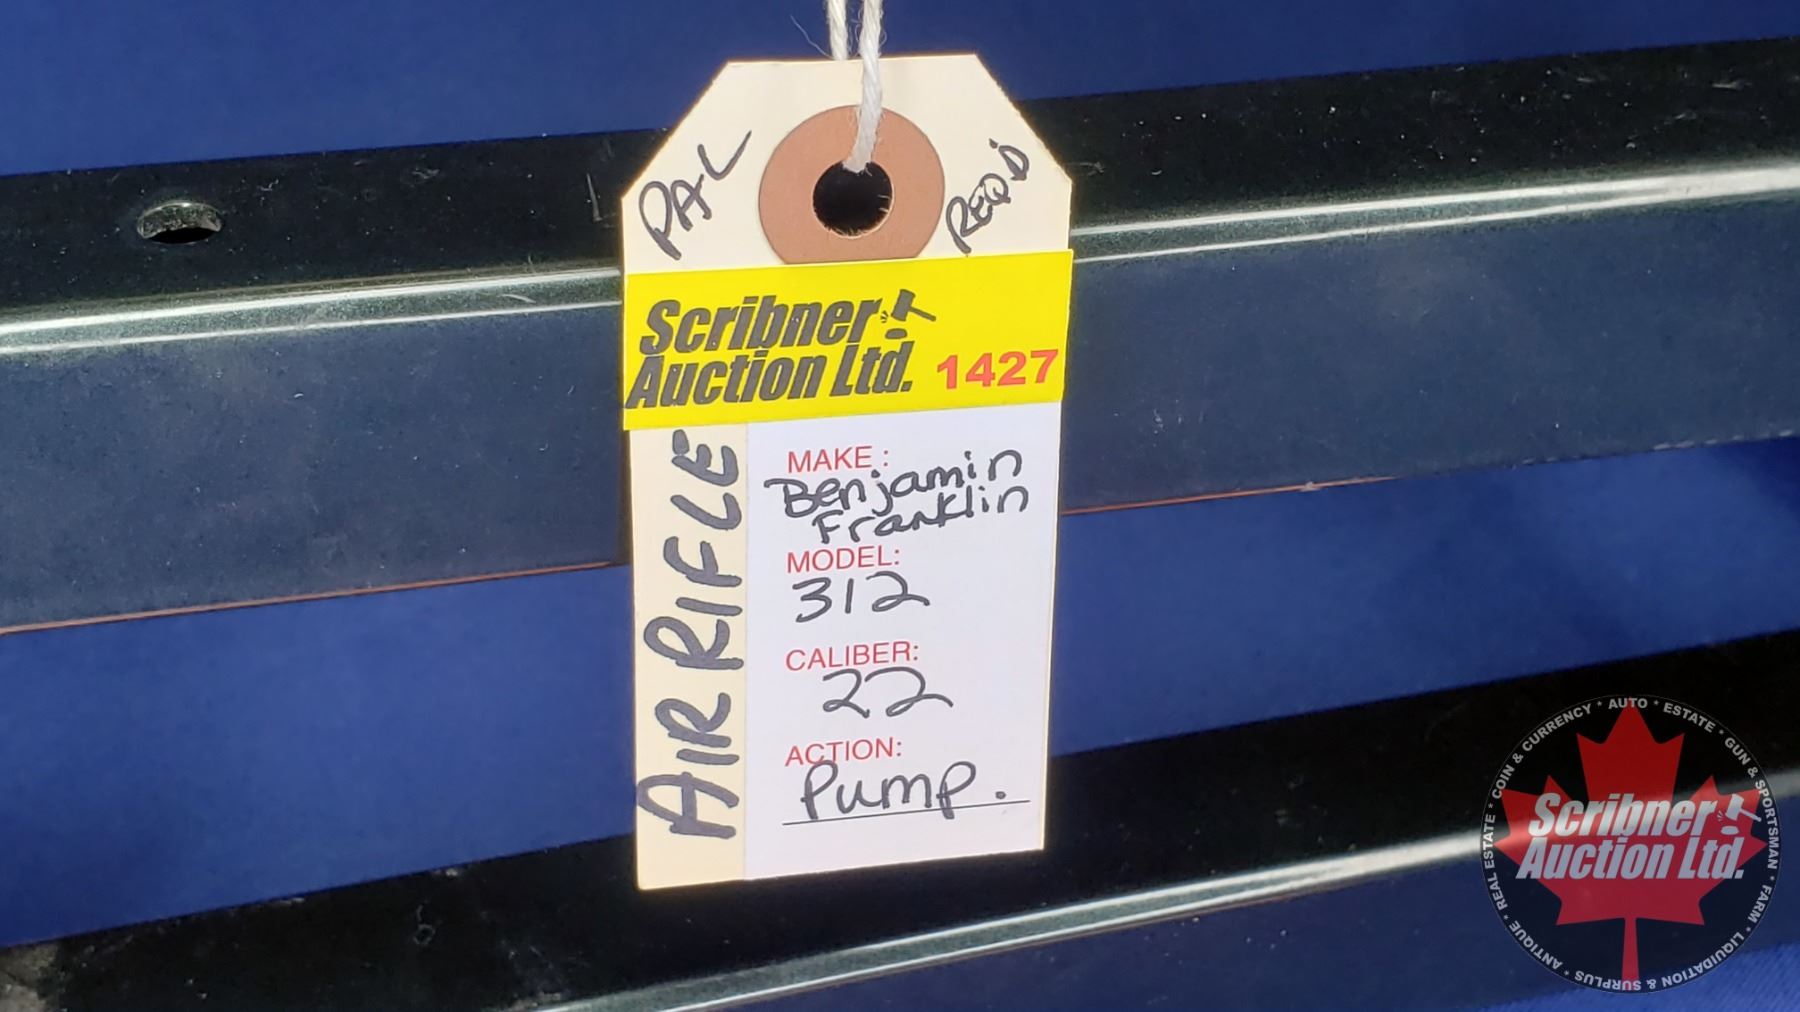 PAL REQ'D
Scribner
Auction Ltd. 1427
AIR RIFLE
MAKE:
Benjamin
Franklin
MODEL:
312
CALIBER:
22
ACTION:
Pump.
ANTIQUE * REAL ESTATE * COIN & CURRENCY * AUTO * ESTATE * GUN & SPORTSMAN * FARM * LIQUIDATION & SURPLUS *
Scribner
Auction Ltd.